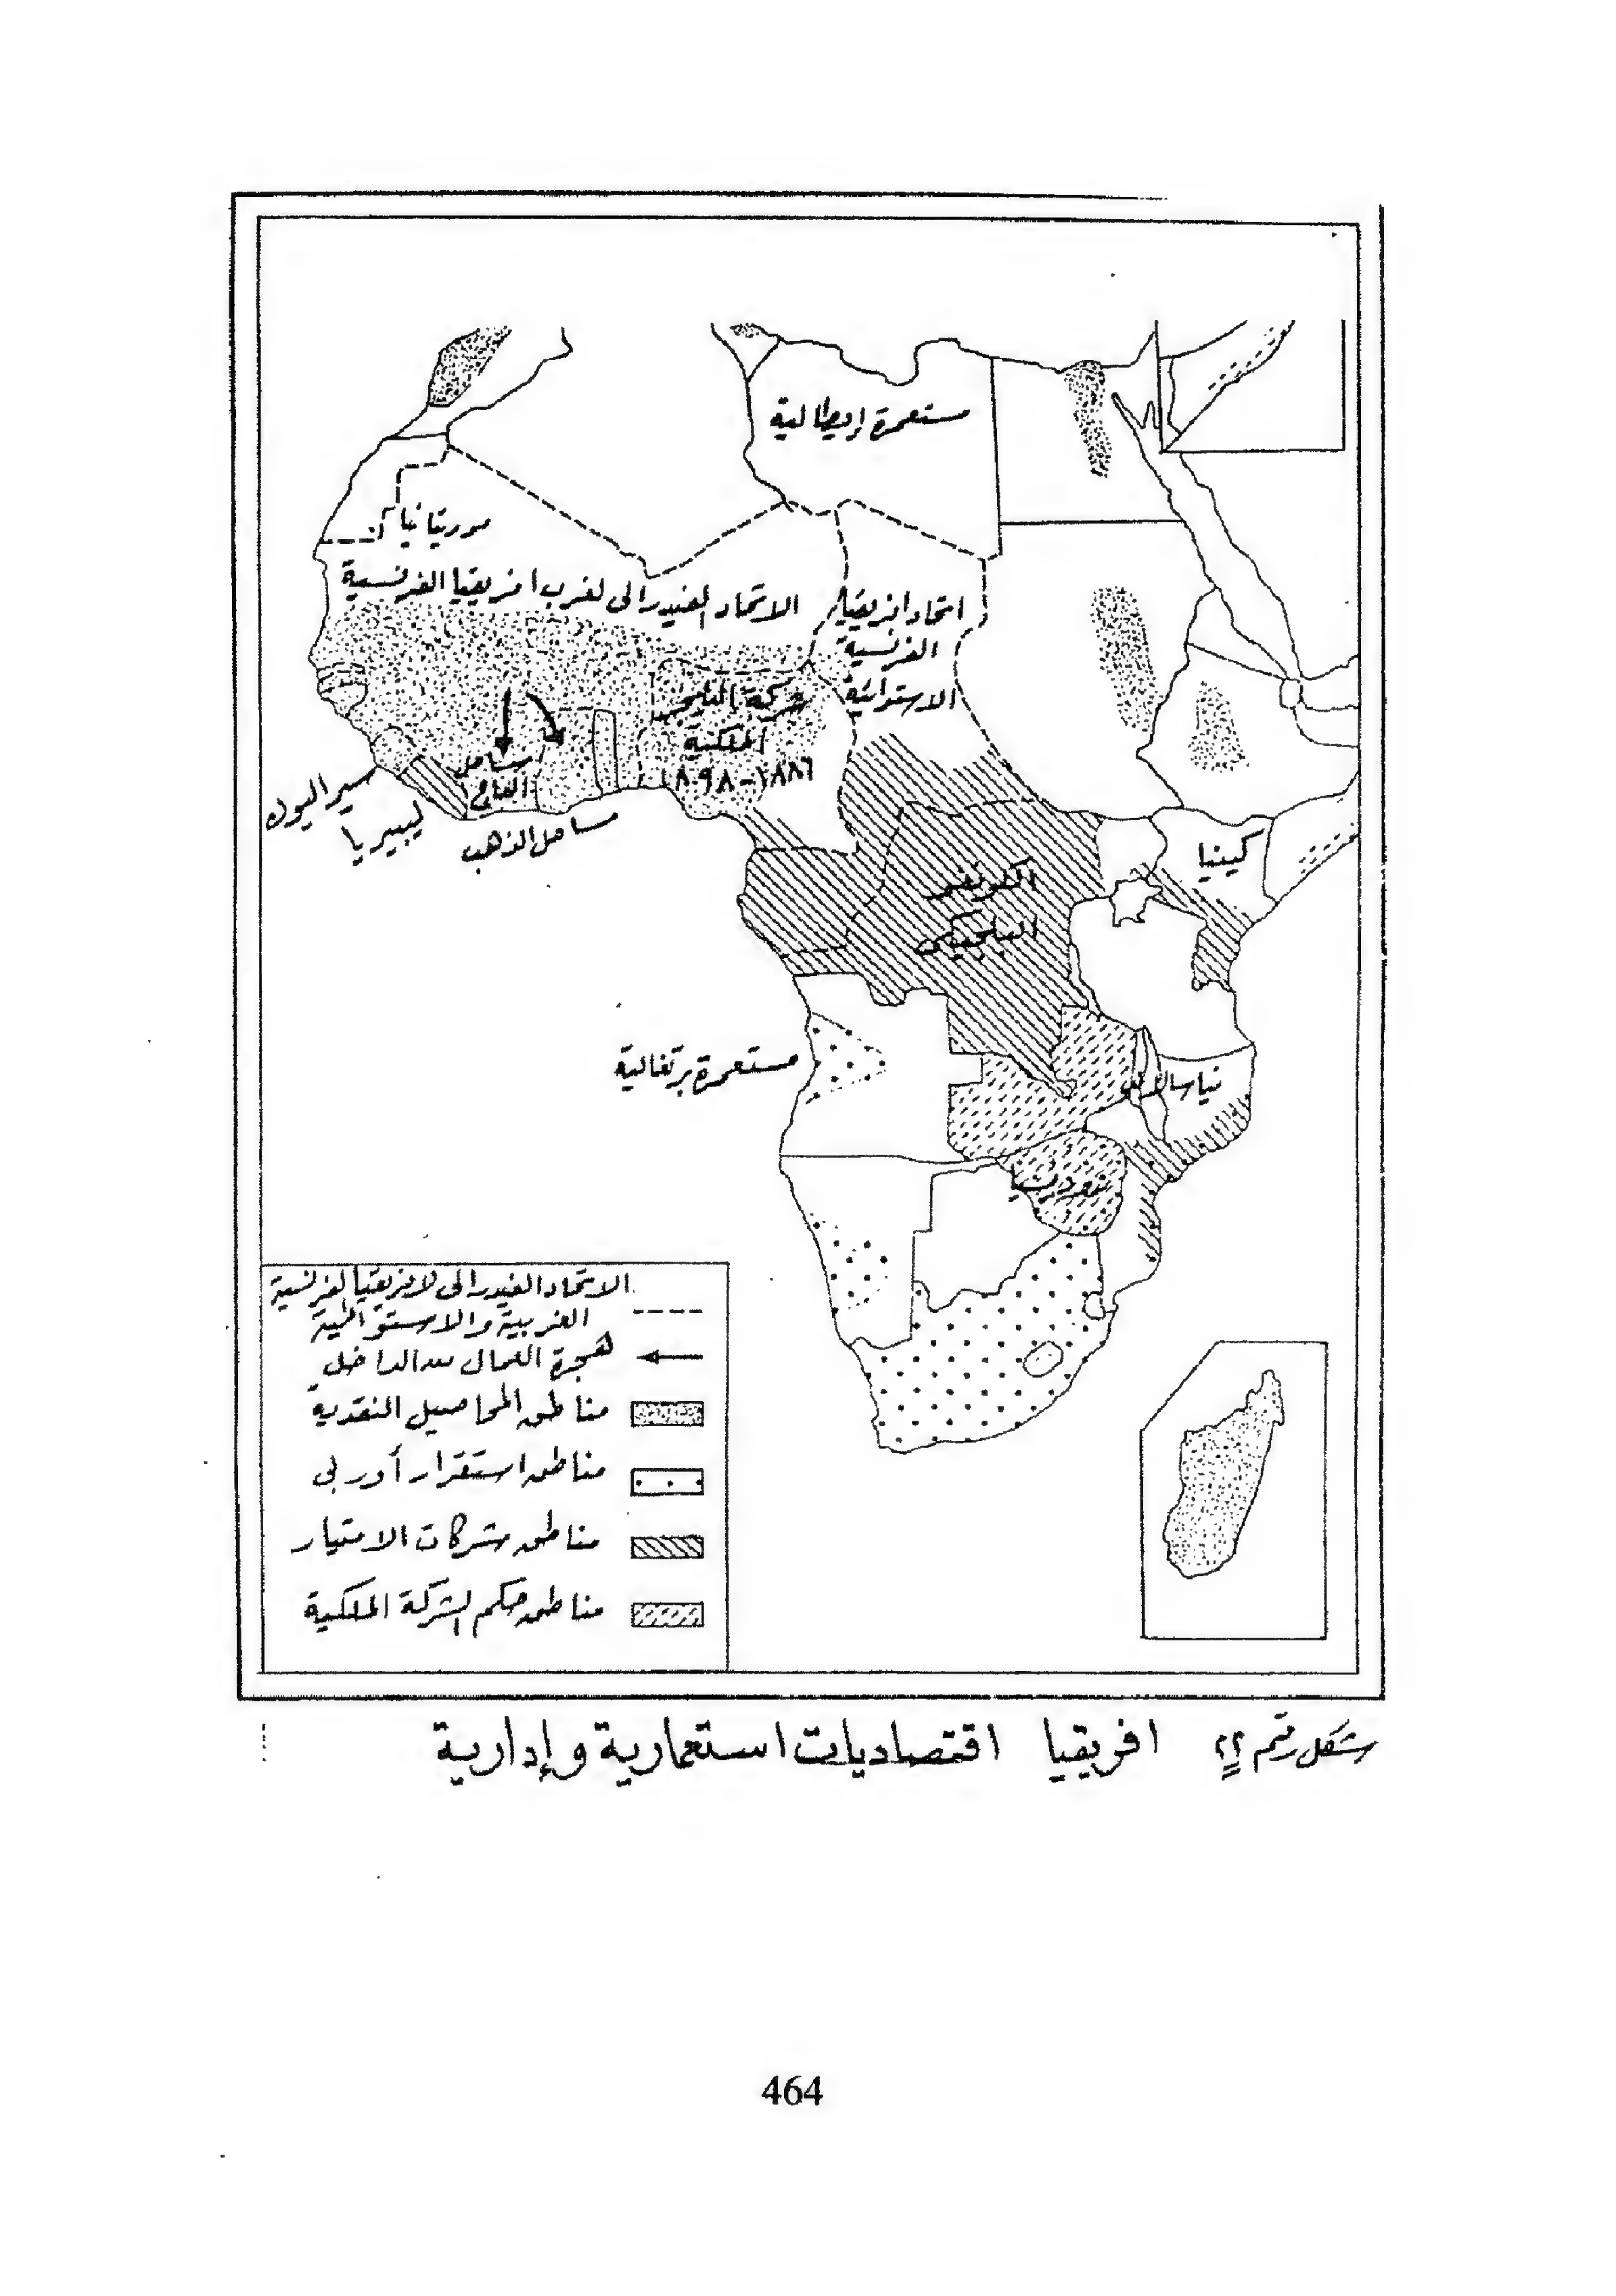 مستعمرة إيطالية
موريتانيا
الاتحاد الفيدرالى لغرب افريقيا الفرنسية
اتحاد افريقيا
الفرنسية
الاستوائية
شركة النيجر
الملكية
١٨٨٦-١٨٩٨
ساحل
العاج
سيراليون
ليبيريا
ساحل الذهب
كينيا
الكونغو
البلجيكى
مستعمرة برتغالية
نياسالاند
روديسيا
الاتحاد الفيدرالى لافريقيا الفرنسية
الغربية والاستوائية
هجرة العمال من الداخل
مناطق المحاصيل النقدية
مناطق استقرار أوربى
مناطق شركات الامتياز
مناطق حكم الشركة الملكية
شكل رقم ٢٢ افريقيا اقتصاديات استعمارية وإدارية
464